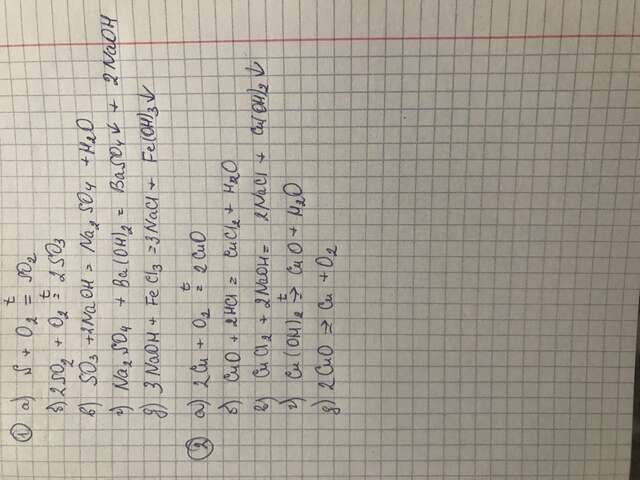 1 а) S + O₂ =ᵗ SO₂
б) 2SO₂ + O₂ =ᵗ 2SO₃
в) SO₃ + 2NaOH = Na₂SO₄ + H₂O
г) Na₂SO₄ + Ba(OH)₂ = BaSO₄↓ + 2NaOH
д) 3NaOH + FeCl₃ = 3NaCl + Fe(OH)₃↓
2 а) 2Cu + O₂ =ᵗ 2CuO
б) CuO + 2HCl = CuCl₂ + H₂O
в) CuCl₂ + 2NaOH = 2NaCl + Cu(OH)₂↓
г) Cu(OH)₂ →ᵗ CuO + H₂O
д) 2CuO → Cu + O₂